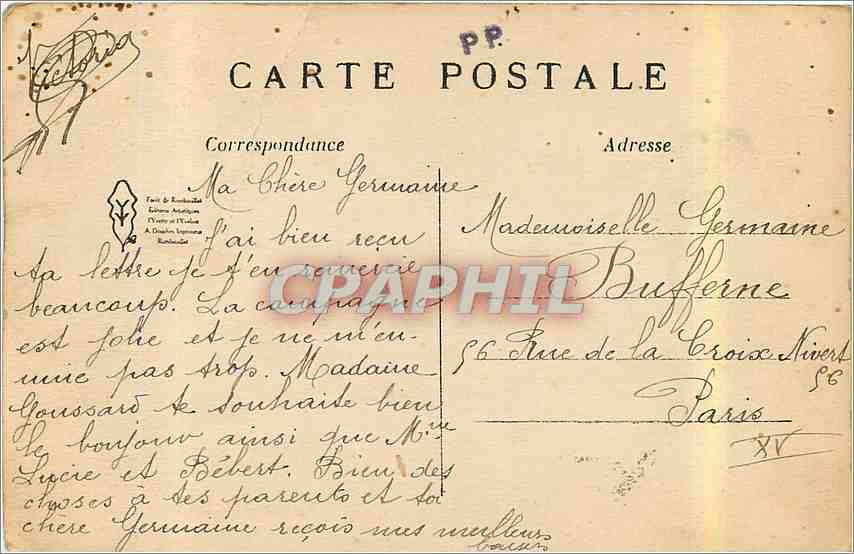 Victoria
PP
CARTE POSTALE
Correspondance
Adresse
Ma Chère Germaine
Forêt de Rambouillet
Editions Artistiques
l'Yvette et l'Yveline
A. Douchin Imprimeur
Rambouillet
J'ai bien reçu
ta lettre je t'en remercie
beaucoup. La campagne
est jolie et je ne m'en-
nuie pas trop. Madame
Goussard te souhaite bien
le bonjour ainsi que Mme
Lucie et Bébert. Bien des
choses à tes parents et toi
chère Germaine reçois mes meilleurs
baisers
Mademoiselle Germaine
Bufferne
56 Rue de la Croix Nivert
56
Paris
XV
CPAPHIL